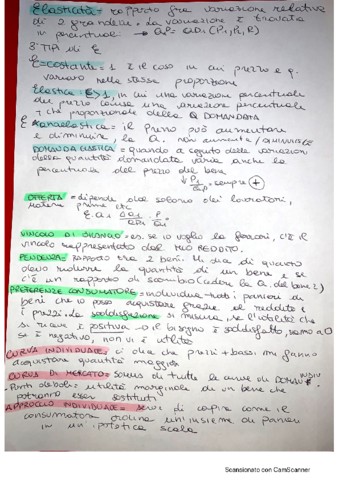 Elasticità = rapporto fra variazione relative
di 2 grandezze. La variazione è trovata
in percentuale → QDi (P1, Pi, R)
3 TIPI di E
E = costante = 1 è il caso in cui prezzo e q.
variano nella stessa proporzione
Elastica = E > 1, in cui una variazione percentuale
del prezzo causa una variazione percentuale
che proporzionale della Q DOMANDATA
E Anaelastica = il prezzo può aumentare
e diminuire, la Q. non aumenta / DIMINUISCE
DOMANDA ELASTICA = quando a seguito delle variazioni
della quantità domandata varia anche la
percentuale del prezzo del bene
sempre +
OFFERTA = dipende dal salario dei lavoratori,
materie prime etc
VINCOLO DI BILANCIO = es. se io voglio la Ferrari, c'è il
vincolo rappresentato dal MIO REDDITO.
PENDENZA = rapporto tra 2 beni. Mi dice di quanto
devo ridurre la quantità di un bene e se
c'è un rapporto di scambio (cedere la Q. del bene 2)
PREFERENZE CONSUMATORE = individua tutti panieri di
beni che io posso acquistare grazie al reddito e
i prezzi. La soddisfazione si misura, se l'utilità che
si riceve è positiva → il bisogno è soddisfatto, siamo a 0
se è negativo, non vi è utilità
CURVA INDIVIDUALE = ci dice che prezzi + bassi mi fanno
acquistare quantità maggiori
CURVA DI MERCATO = Somma di tutte le curve di DOMANDA INDIV
Punti deboli = utilità marginale di un bene che
potranno esser sostituti
APPROCCIO INDIVIDUALE = serve di capire come il
consumatore ordina un'insieme di panieri
in un'ipotetica scala
Scansionato con CamScanner